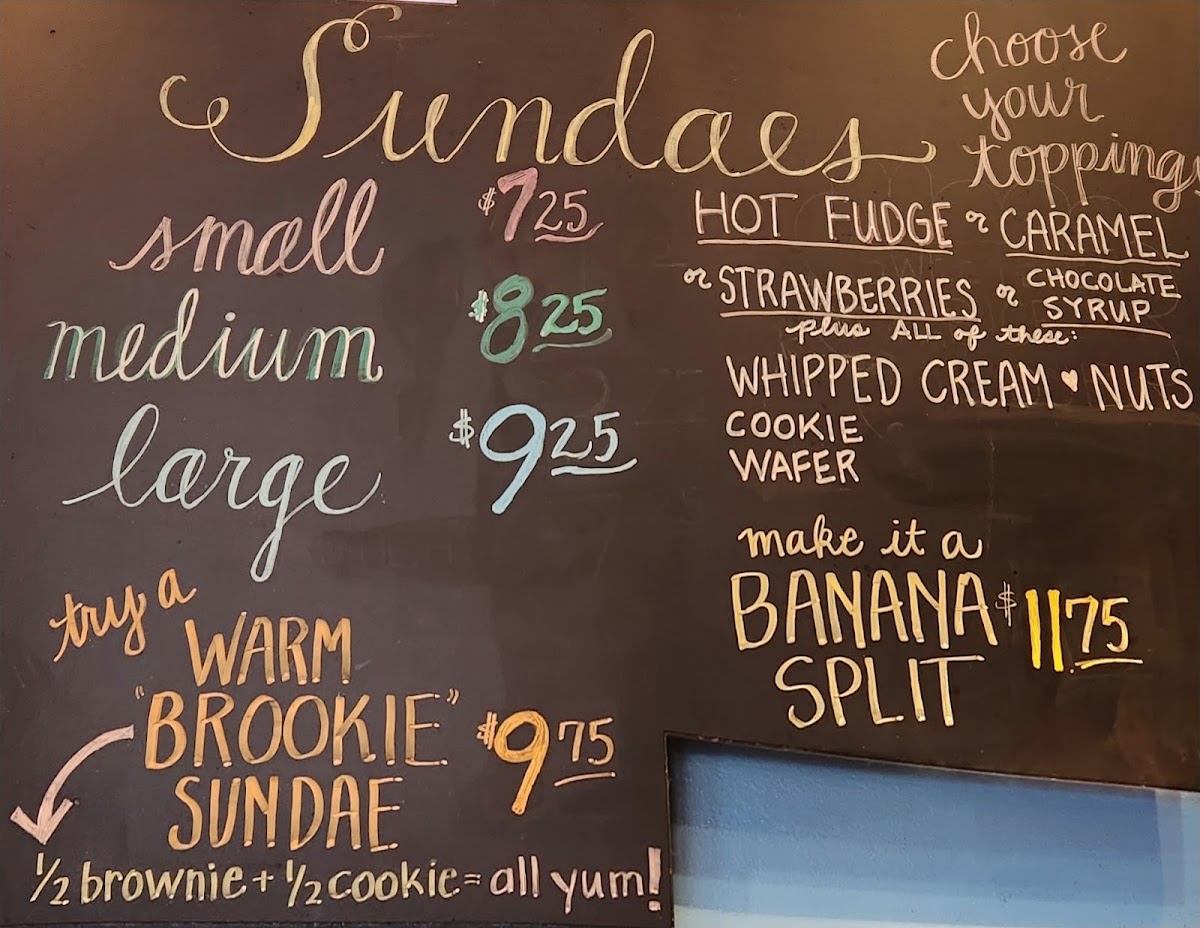 Sundaes
small $7.25
medium $8.25
large $9.25
try a
WARM
"BROOKIE"
SUNDAE $9.75
1/2 brownie + 1/2 cookie = all yum!
choose
your
topping
HOT FUDGE or CARAMEL
or STRAWBERRIES or CHOCOLATE
SYRUP
plus ALL of these:
WHIPPED CREAM ♥ NUTS
COOKIE
WAFER
make it a
BANANA $11.75
SPLIT